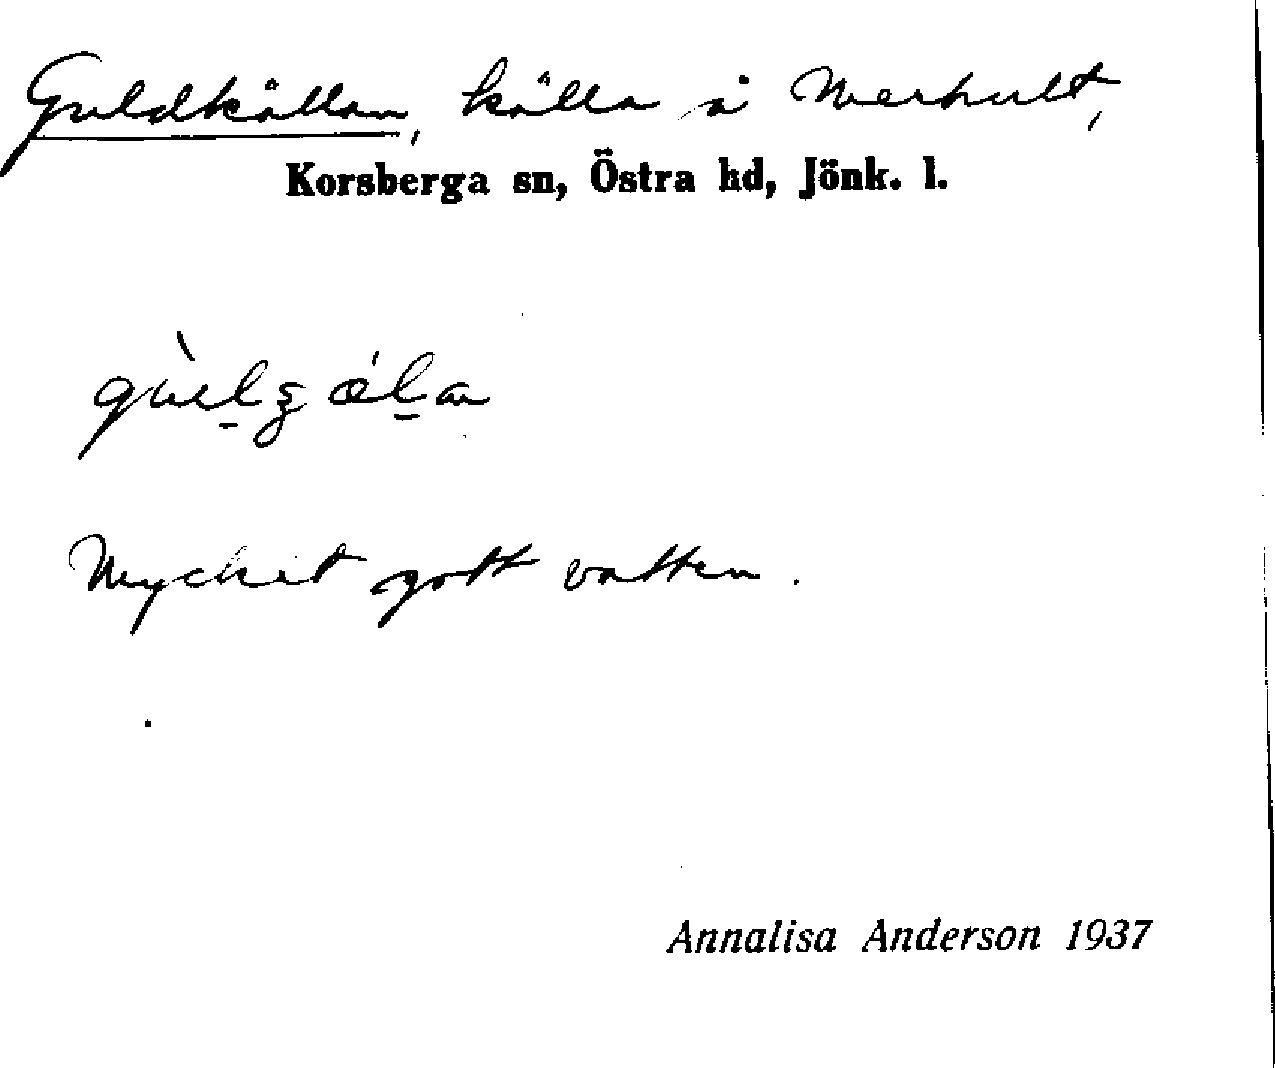 Guldkällan, källa å Merhult,
Korsberga sn, Östra hd, Jönk. l.
Mycket gott vatten.
Annalisa Anderson 1937